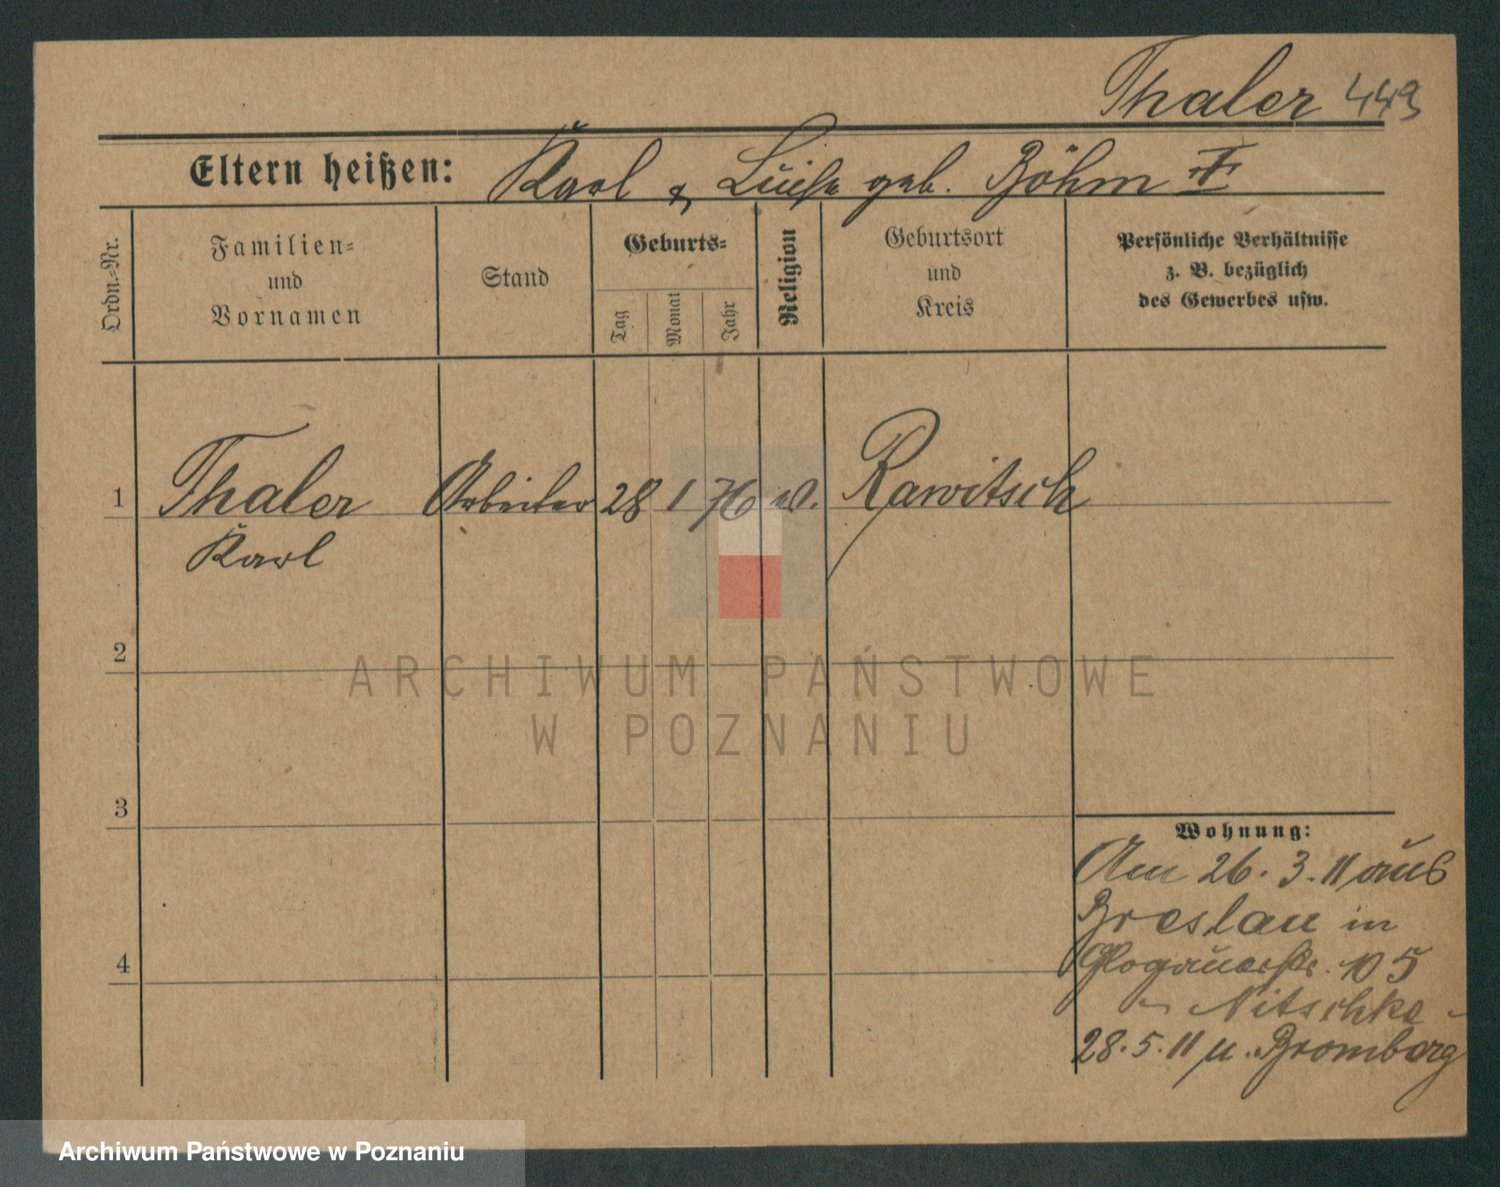 Thaler 449
Eltern heißen: Karl & Luise geb. Böhm
Ordn.-Nr.
Familien-
und
Vornamen
Stand
Geburts-
Tag
Monat
Jahr
Religion
Geburtsort
und
Kreis
Persönliche Verhältnisse
z. B. bezüglich
des Gewerbes usw.
1 Thaler Arbeiter 28 1 76 ev. Rawitsch
Karl
2
3
4
Wohnung:
Am 26. 3. 11 aus
Breslau in
Glogauerstr. 105
Nitschke
28. 5. 11 n. Bromberg
ARCHIWUM PAŃSTWOWE
W POZNANIU
Archiwum Państwowe w Poznaniu